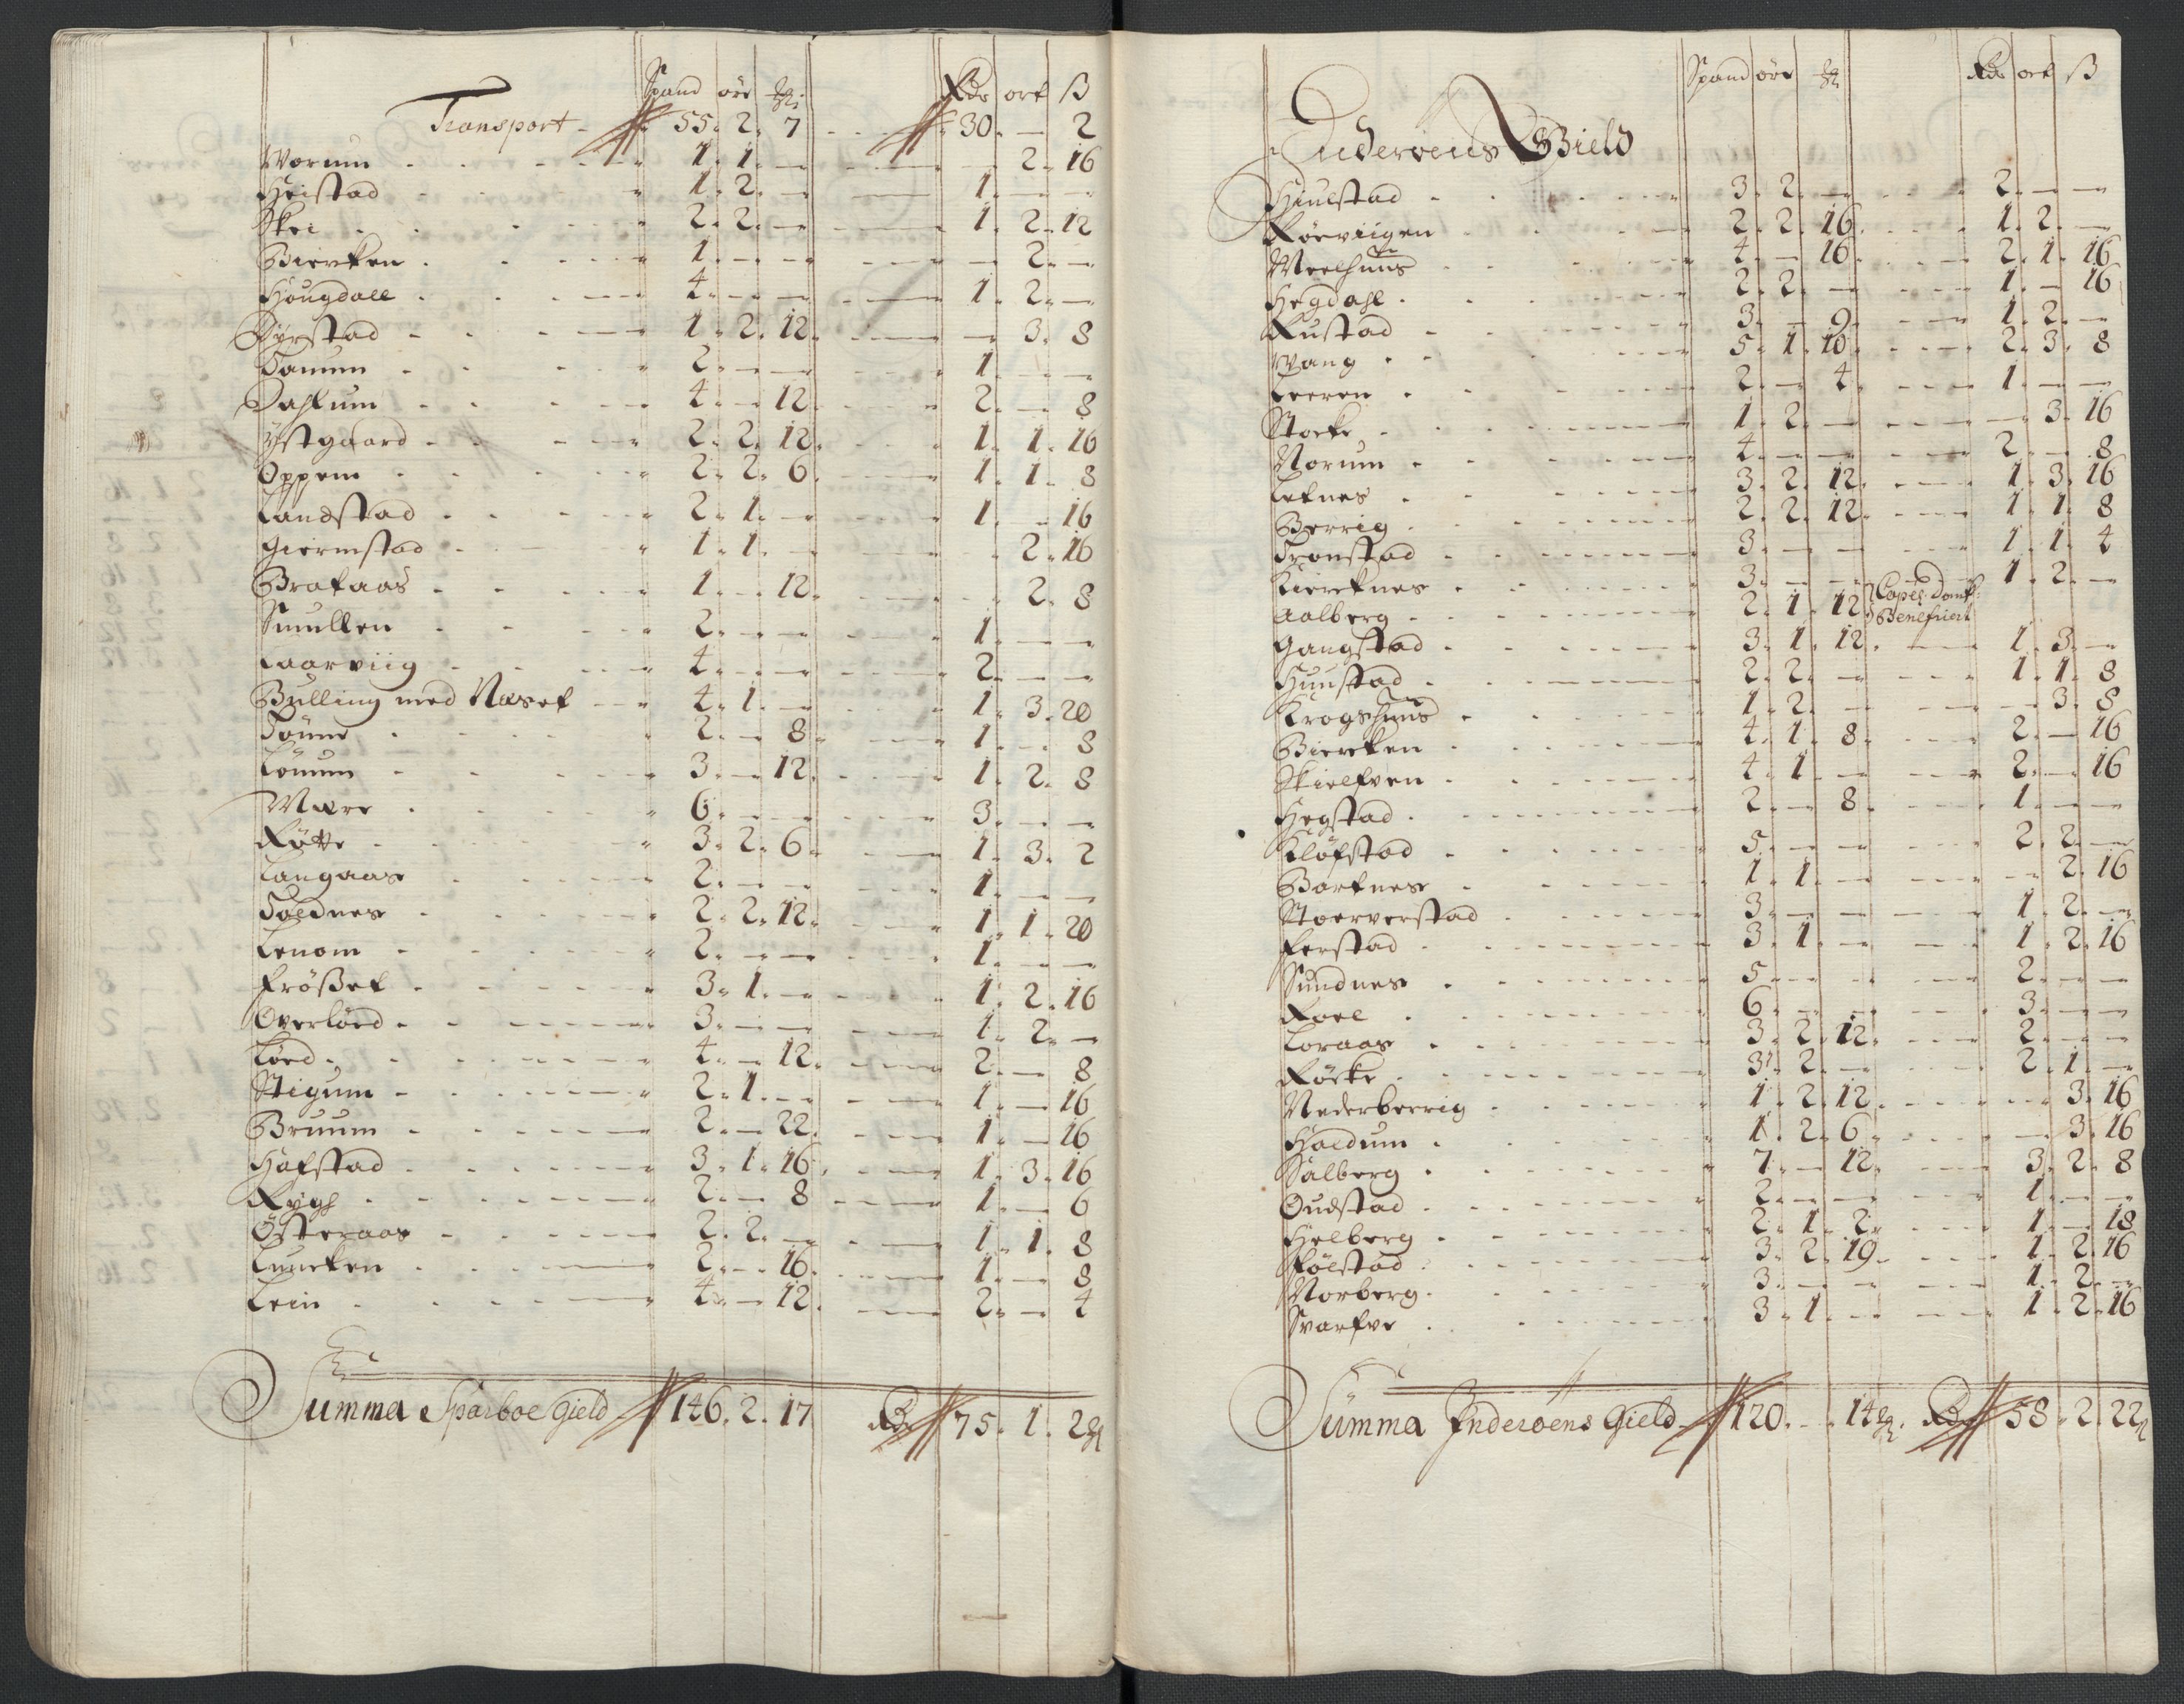 Spand øre ₰ Rdr ort ß
Transport - 55. 2. 7 30. — 2
Worum 1. 1. — — 2. 16
Heistad 1. 2. — 1. — —
Skei 2. 2. — 1. 2. 12
Biercken 1. — — — 2. —
Hougdall 4. — — 1. 2. —
Dyrstad 1. 2. 12. — 3. 8
Tamum 2. — — 1. — —
Dahlum 4. — 12. 2. — 8
Ystgaard 2. 2. 12. 1. 1. 16
Oppem 2. 2. 6. 1. 1. 8
Landstad 2. 1. — 1. — 16
Giermstad 1. 1. — 2. 16
Brataas 1. — 12. 2. 8
Smullen 2. — — 1. — —
Laarviig 4. — — 2. — —
Bulling med Næset 4. 1. — 1. 3. 20
Tønne 2. — 8. 1. — 8
Lønum 3. — 12. 1. 2. 8
Mære 6. — — 3. — —
Røtte 3. 2. 6. 1. 3. 2
Langaas 2. — — 1. — —
Toldnes 2. 2. 12. 1. 1. 20
Lenom 2. — — 1. — —
Frøßet 3. 1. — 1. 2. 16
Overløed 3. — — 1. 2. —
Løed 4. — 12. 2. — 8
Stigum 2. 1. — 1. — 16
Bruum 2. — 22. 1. — 16
Hafstad 3. 1. 16. 1. 3. 16
Rygh 2. — 8 1. — 6
Østeraas 2. 2. — 1. 1. 8
Luncken 2. — 16. 1. — 8
Lein 4. — 12. 2. — 4
Summa Sparboe gield 146. 2. 17 Rdr 75. 1. 2
Spand øre ₰ Rdr ort ß
Inderøens Gield
Hiulstad 3. 2. — 2. — —
Røeviigen 2. 2. 16. 1. 2. —
Meelhuus 4. — 16. 2. 1. 16
Hegdahl 2. 2. — 1. — 16
Rustad 3. — 9. 1. 2. —
Wang 5. 1. 10. 2. 3. 8
Leeren 2. — 4. 1. — —
Stocke 1. 2. — — 3. 16
Norum 4. — — 2. — 8
Letnes 3. 2. 12. 1. 3. 16
Berrig 2. 2. 12. 1. 1. 8
Tronstad 3. — — 1. 1. 4
Kierknes 3. — — 1. 2. —
Aalberg 2. 1. 12 Capel: Dom: Beneficert
Gangstad 3. 1. 12. 1. 3. —
Huustad 2. 2. — 1. 1. 8
Krogshuus 1. 2. — — 3. 8
Biercken 4. 1. 8. 2. — 16
Skielfven 4. 1. — 2. — 16
Hegstad 2. — 8. 1. — —
Kløfstad 5. — — 2. 2. —
Bartnes 1. 1. — — 2. 16
Stoerverstad 3. — — 1. 2. —
Ferstad 3. 1. — 1. 2. 16
Sundnes 5. — — 2. — —
Roel 6. — — 3. — —
Loraas 3. 2. 12. 2. — —
Røske 3. 2. — 2. 1. —
Nederberrig 1. 2. 12. — 3. 16
Haldum 1. 2. 6. — 3. 16
Salberg 7. — 12. 3. 2. 8
Oudstad 2. — — 1. — —
Hielberg 2. 1. 2. 1. — 18
Følstad 3. 2. 19. 1. 2. 16
Norberg 3. — — 1. 2. —
Svarfve 3. 1. — 1. 2. 16
Summa Inderøens Gield 120. — 14 Rdr 58. 2. 22